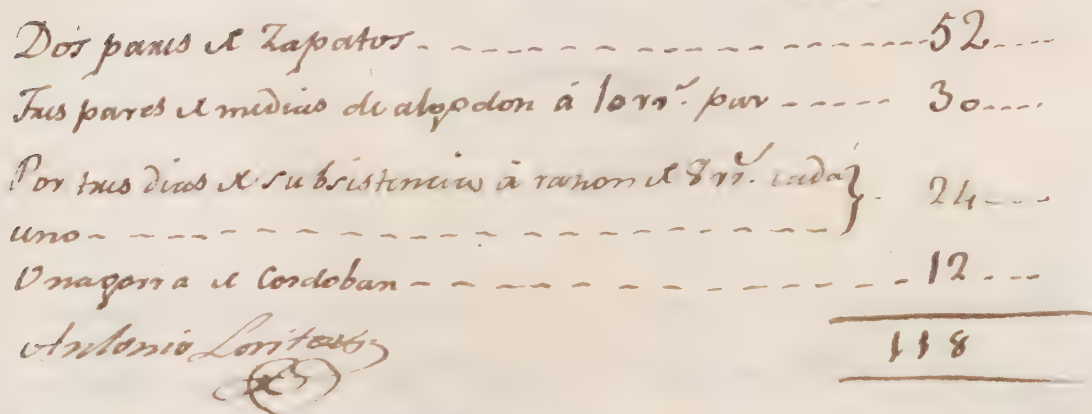 Dos pares de Zapatos - - - - - - - - - - - - - - - 52 - - - -
Tres pares de medias de algodon á 10 rr.^s par - - - - - 30 - - - -
Por tres dias de subsistencia á razon de 8 rr.^s cada } - 24 - - - -
uno - - - - - - - - - - - - - - - - -
Una gorra de Cordoban - - - - - - - - - - - - - 12 - - - -
Antonio 118